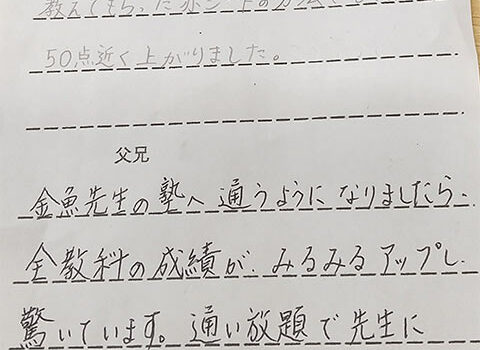 教えてもらった
50点近く上がりました。
父兄
金魚先生の塾へ通うようになりましたら、
全教科の成績が、みるみるアップし、
驚いています。通い放題で先生に